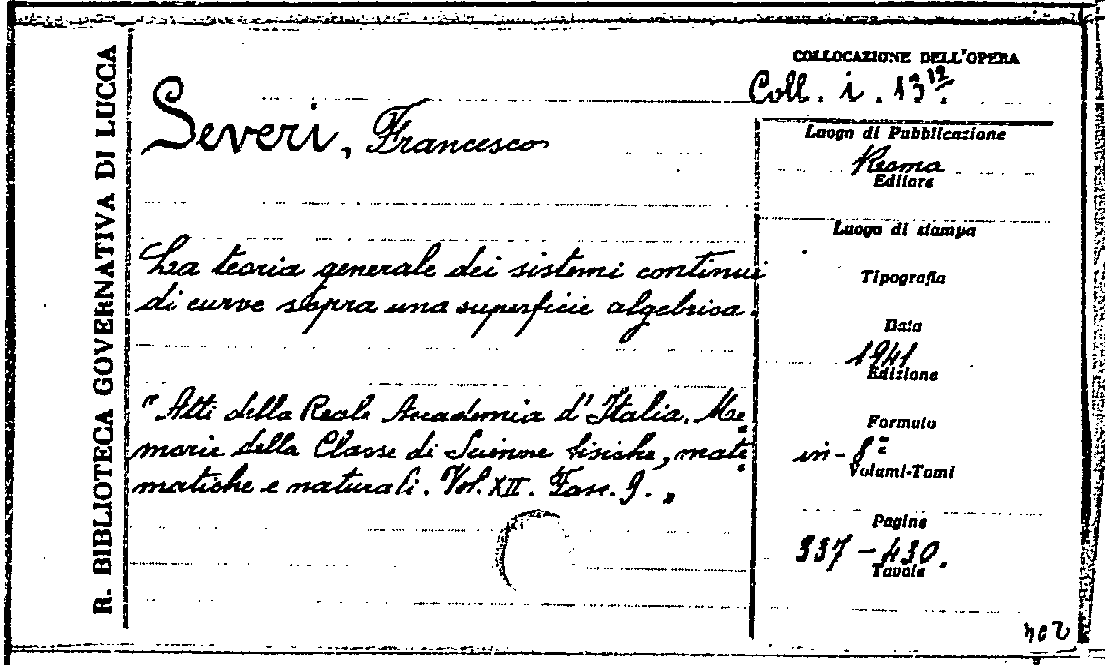 R. BIBLIOTECA GOVERNATIVA DI LUCCA
COLLOCAZIONE DELL'OPERA
Coll. i. 13 12.
Severi, Francesco
Luogo di Pubblicazione
Roma
Editore
Luogo di stampa
La teoria generale dei sistemi continui
di curve sopra una superficie algebrica.
Tipografia
Data
1941
Edizione
"Atti della Reale Accademia d'Italia. Me=
morie della Classe di Scienze fisiche, mate=
matiche e naturali. Vol. XII. Fasc. 9."
Formato
in-8°
Volumi-Tomi
Pagine
337-430.
Tavole